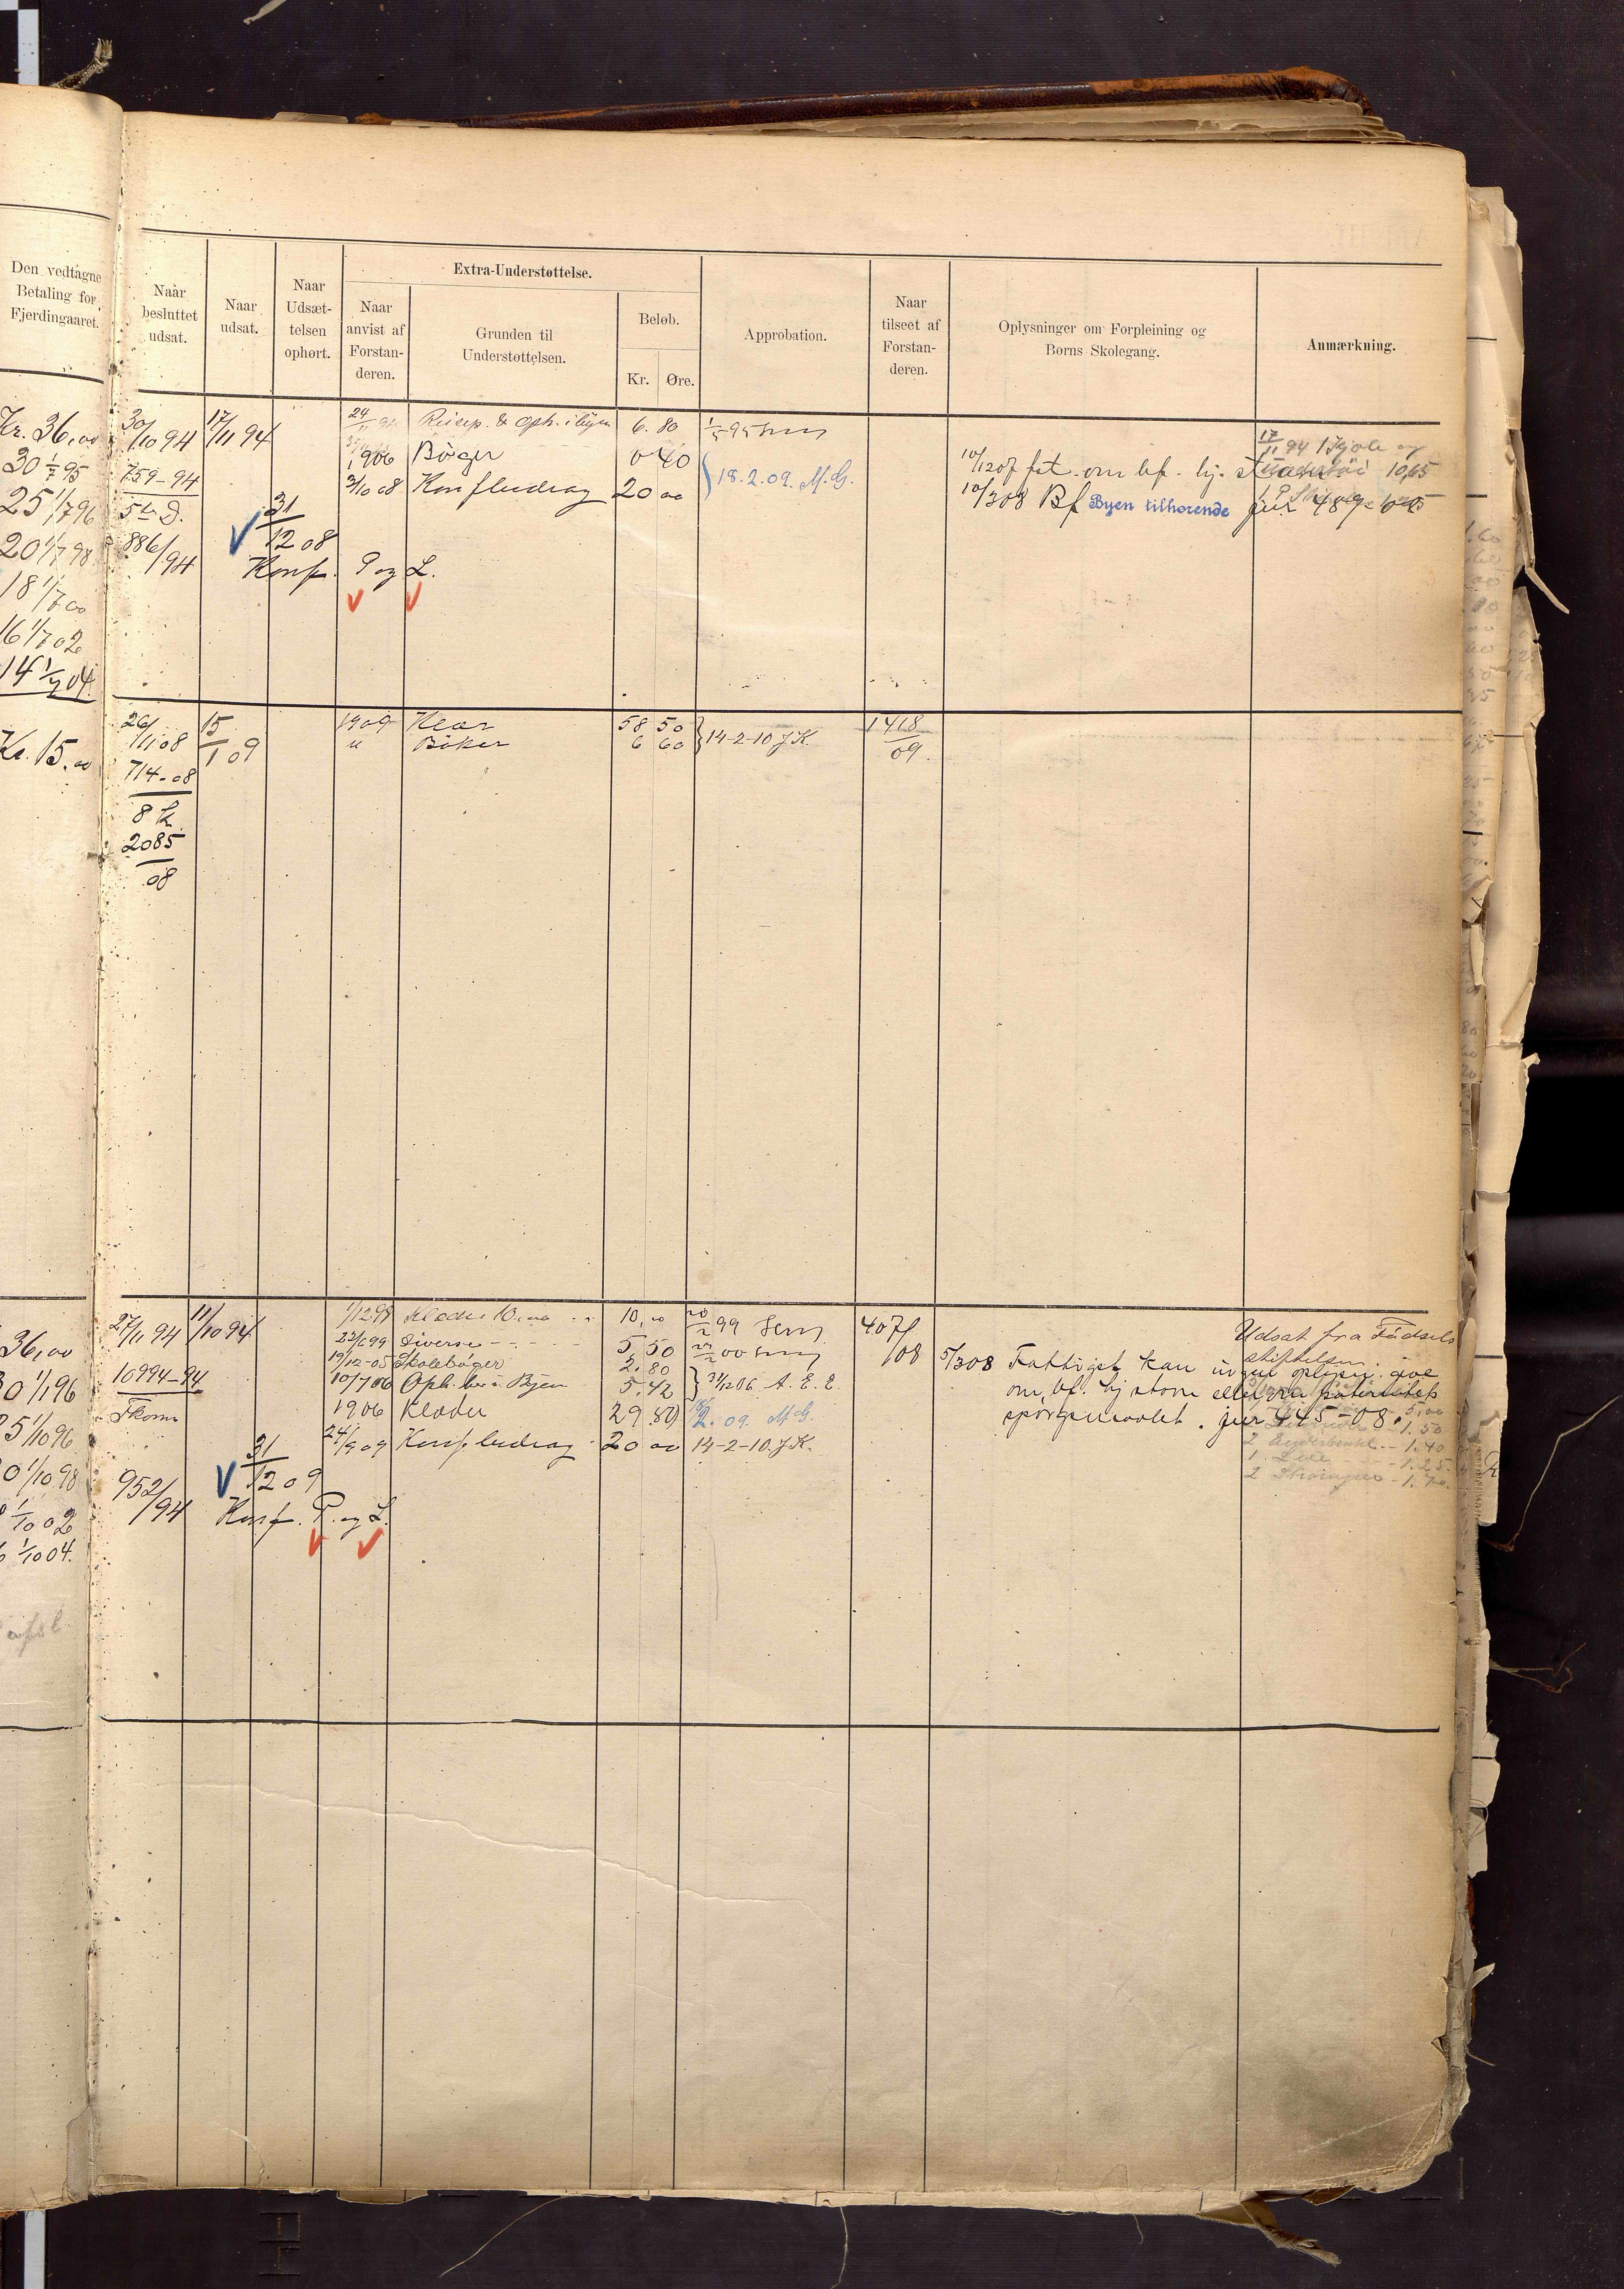 Den vedtagne
Betaling for
Fjerdingaaret.
Naar
besluttet
udsat.
Naar
udsat.
Naar
Udsæt-
telsen
ophørt.
Extra-Understøttelse.
Naar
anvist af
Forstan-
deren.
Grunden til
Understøttelsen.
Beløb.
Kr. Øre.
Approbation.
Naar
tilseet af
Forstan-
deren.
Oplysninger om Forpleining og
Børns Skolegang.
Anmærkning.
Kr. 36,00
30 1/7 95
25 1/7 96
20 1/7 98
18 1/7 00
16 1/7 02
14 1/7 04.
30/10 94 17/11 94
759-94
5te D.
886/94
31/12 08
Konf. P og L.
24/11 94 Reisep. & Oph. i byen 6. 80
1906 Bøger 0 40
3/10 08 Konfbidrag 20 00
1/5 95
18.2.09. M.G.
10/1207 fat. om bf. hj.
10/308 Bf Byen tilhørende jur 489-08
17/11 94 1 Kjole og
10,65
Kr. 15,00
26/11 08 15/1 09
714-08
8 k
2085/08
1909 Klær 58 50
" Bøker 6 60
14-2-10 J.K.
1418/09.
36,00
30 1/1 96
25 1/10 96
20 1/10 98
1/10 02
1/10 04.
27/11 94 11/10 94
10994-94
Tkom
952/94
31/12 09
Konf. P. og L.
1/1298 Klæder 10,00 10,00
22/699 Diverse 5,50
19/12-05 Skolebøger 2.80
10/706 Oph. her i Byen 5.42
1906 Klæder 29.80
24/909 Konfbidrag 20 00
20/2 99
00
31/1206 A. E. E.
2. 09. M G.
14-2-10. J.K.
407/08
5/308 Fattigst kan ingen oplysn. give
om bf. hj stavn eller fra paternitets
spørgsmaalet. jur 445-08.
Udsat fra Fødsels
stiftelsen.
5,00
1.50
2 Underbenkl. - 1.40
1.25
2 Strømper - 1.70